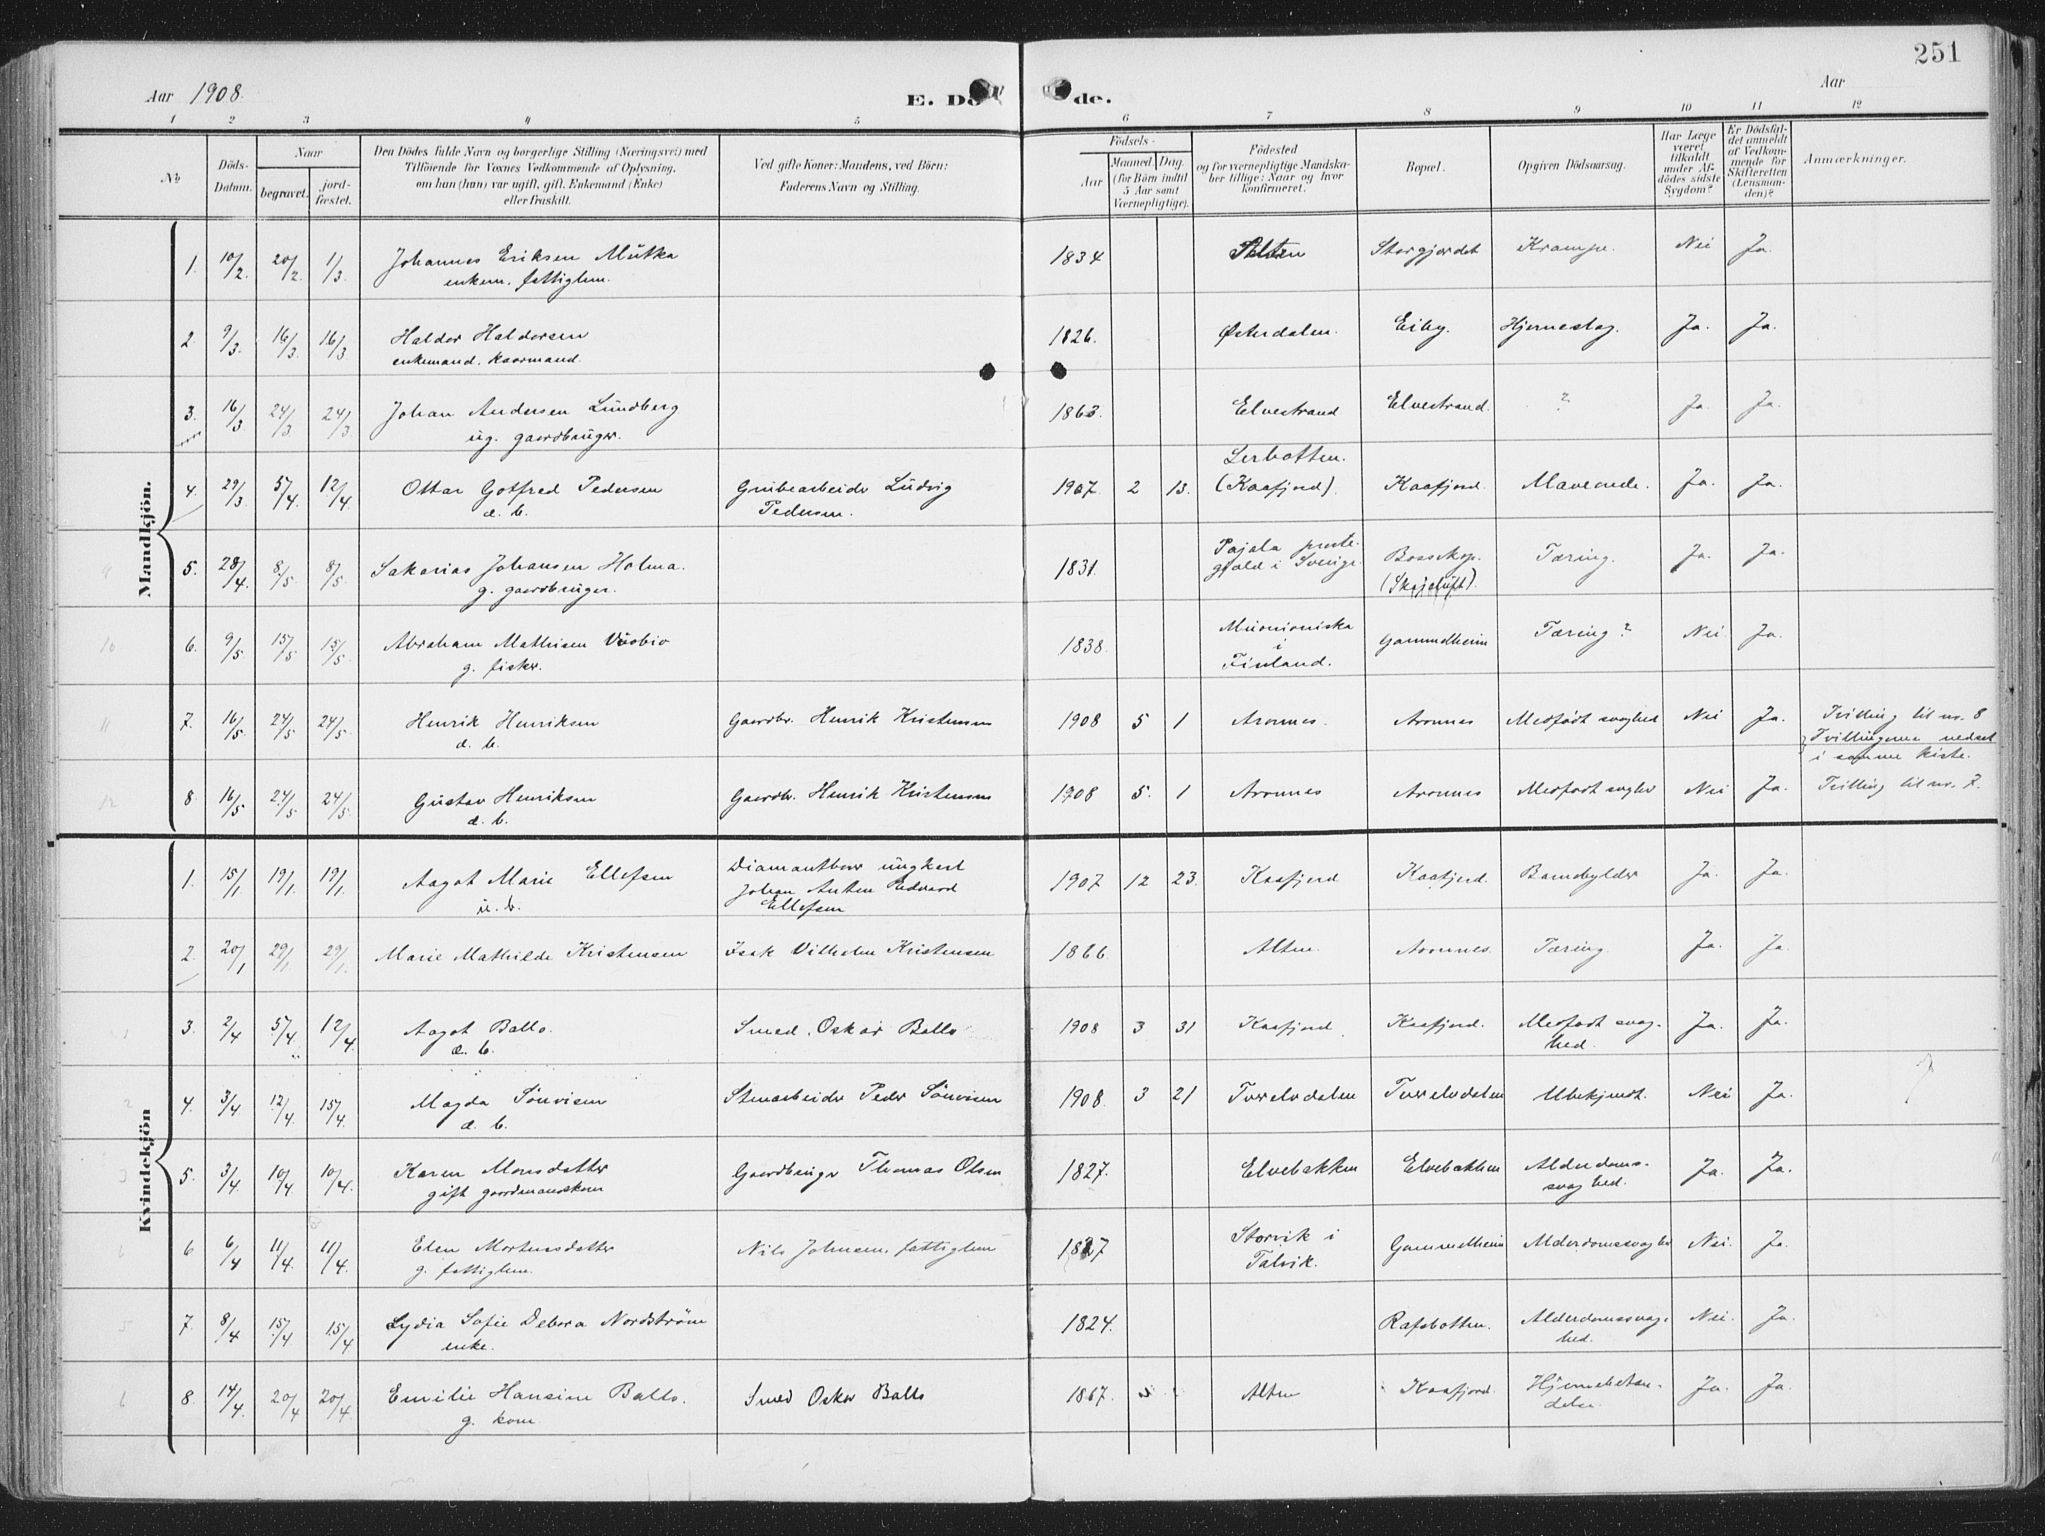 251
Aar 1908.
E. Dö de.
Aar
1 2 3 4 5 6 7 8 9 10 11 12
No
Döds-Datum.
Naar
begravet.
jord-fæstet.
Den Dödes fulde Navn og borgerlige Stilling (Næringsvei) med
Tilföiende for Voxnes Vedkommende af Oplysning,
om han (hun) var ugift, gift, Enkemand (Enke)
eller fraskilt.
Ved gifte Koner: Mandens, ved Börn:
Faderens Navn og Stilling.
Födsels-
Aar
Maaned Dag
(for Börn indtil
5 Aar samt
Værnepligtige).
Födested
og for værnepligtige Mandska-
ber tillige: Naar og hvor
konfirmeret.
Bopæl.
Opgiven Dödsaarsag.
Har Læge
været
tilkaldt
under Af-
dödes sidste
Sygdom?
Er Dödsfal-
det anmeldt
af Vedkom-
mende for
Skifteretten
(Lensman-
den)?
Anmærkninger.
Mandkjön.
1. 10/2 20/2 1/3 Johannes Eriksen Mutka 1834 Alten Storgjordet Krampe. Nei Ja.
enkem. fattiglem.
2 9/3 16/3 16/3 Haldor Haldorsen 1826. Østerdalen. Eiby. Hjerneslag. Ja. Ja.
enkemand. kaarmand.
3. 16/3 24/3 24/3 Johan Andersen Lundberg 1863 Elvestrand Elvestrand. ? Ja Ja.
ug. gaardbruger.
4. 29/3 5/4 12/4 Ottar Gotfred Pedersen Grubearbeider Ludvig 1907. 2 13. Lerbotten. Kaafjord. Mavemde. Ja. Ja.
d. b. Pedersen. (Kaafjord).
5. 28/4 8/5 8/5 Sakarias Johansen Holma. 1831. Pajala preste- Bossekop. Tæring. Ja Ja.
g. gaardbruger. gjæld i Sverige.
6. 9/5 15/5 15/5 Abraham Mathisen Vuobio 1838. Muonioniska Gammelheim Tæring? Nei Ja.
g. fisker. i
Finland.
7. 16/5 24/5 24/5 Henrik Henriksen Gaardbr. Henrik Kristensen 1908 5 1 Aronnes. Aronnes Medfødt svaghed Nei Ja. Tvilling til no. 8
d. b. Tvillingerne nedsat
i samme kiste.
8. 16/5 24/5 24/5 Gustav Henriksen Gaardbr. Henrik Kristensen 1908 5. 1 Aronnes Aronnes Medfødt svaghed Nei Ja. Tvilling til no. 7.
d. b.
Kvindekjön
1. 15/1 19/1. 19/1. Aagot Marie Ellefsen Diamantborer ungkarl 1907 12 23. Kaafjord Kaafjord. Ja. Ja.
u. b. Johan Anton Edvard
Ellefsen
2. 20/1 29/1. 29/1. Marie Mathilde Kristensen Isak Vilhelm Kristensen 1866. Alten. Aronnes. Tæring. Ja. Ja.
3. 2/4 5/4 12/4 Aagot Ballo. Smed. Oskar Ballo 1908 3 31 Kaafjord. Kaafjord. Medfødt svag- Ja. Ja.
d. b. hed.
4. 3/4 12/4 15/4 Magda Sönvisen Stenarbeider Peder Sönvisen 1908. 3 21 Tverelvdalen Tverelvdalen Ubekjendt. Nei Ja.
d. b.
5. 3/4 10/4 10/4 Karen Monsdatter Gaardbruger Thomas Olsen 1827. Elvebakken Elvebakken Alderdoms- Ja. Ja.
gift gaardmandskone svaghed.
6 6/4 11/4 11/4 Elen Mortensdatter Nils Johnsen. fattiglem 1827 Storvik i Gammelheim Alderdomssvaghed Nei. Ja.
g. fattiglem. Talvik.
7. 8/4 15/4 15/4 Lydia Sofie Debora Nordström 1824. Rafsbotten. Alderdomssvag- Nei. Ja.
enke. hed.
8. 14/4 20/4 20/4 Emilie Hansine Ballo. Smed Oskar Ballo 1867. Alten Kaafjord. Hjernebetæn- Ja. Ja.
g. kone delse.